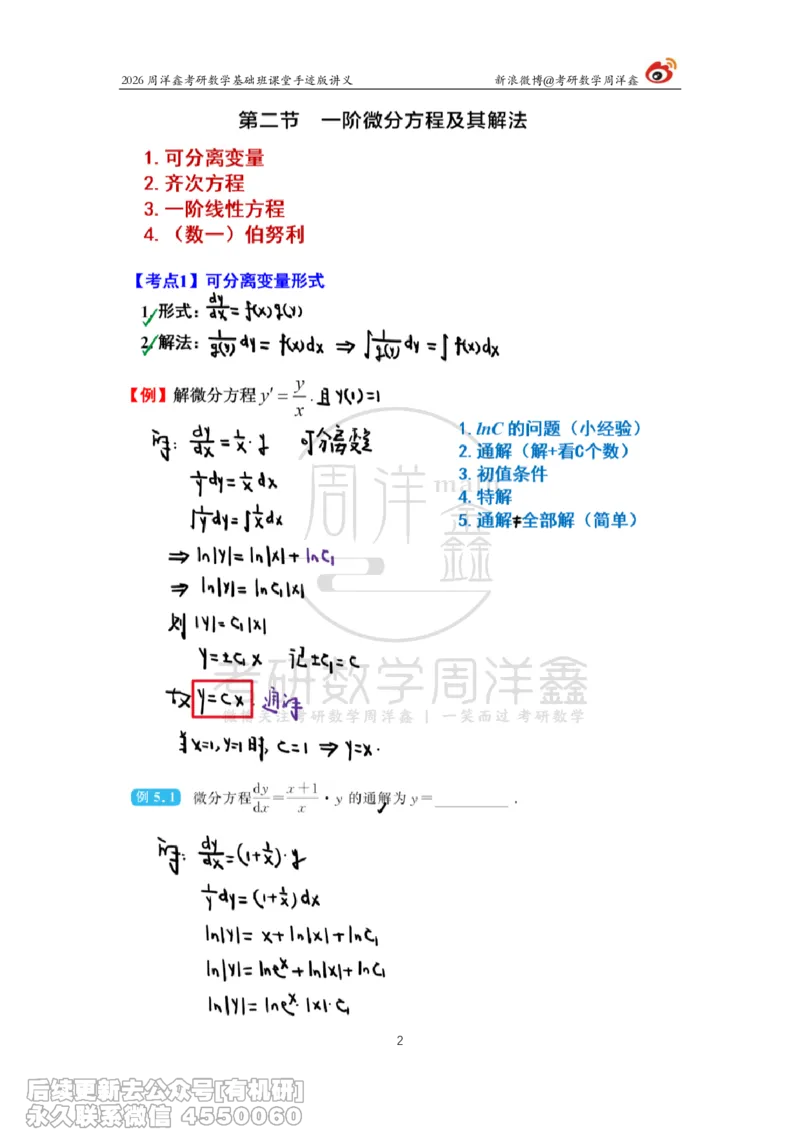 2026 周洋鑫考研数学基础班课堂手迹版讲义 新浪微博@考研数学周洋鑫
第二节 一阶微分方程及其解法
1. 可分离变量
2. 齐次方程
3. 一阶线性方程
4. （数一）伯努利
【考点1】可分离变量形式
1. 形式：dy/dx = f(x)g(y)
2. 解法：1/g(y) dy = f(x)dx ⇒ ∫1/g(y) dy = ∫f(x)dx
【例】解微分方程 y′ = y/x . 且 y(1)=1
解: dy/dx = 1/x · y 可分离变量
1/y dy = 1/x dx
∫1/y dy = ∫1/x dx
⇒ ln|y| = ln|x| + lnC₁
⇒ ln|y| = lnC₁|x|
则 |y| = C₁|x|
y = ±C₁x 记 ±C₁ = C
故 y = Cx . 通解
当 x=1, y=1 时, C=1 ⇒ y=x.
1. lnC 的问题（小经验）
2. 通解（解+看C个数）
3. 初值条件
4. 特解
5. 通解≠全部解（简单）
周洋鑫
math
考研数学周洋鑫
微博关注考研数学周洋鑫 | 一笑而过 考研数学
例 5.1 微分方程 dy/dx = (x+1)/x · y 的通解为 y = ________ .
解: dy/dx = (1+1/x)·y
1/y dy = (1+1/x)dx
ln|y| = x + ln|x| + lnC₁
ln|y| = lneˣ + ln|x| + lnC₁
ln|y| = lneˣ·|x|·C₁
2
后续更新去公众号[有机研]
永久联系微信 4550060